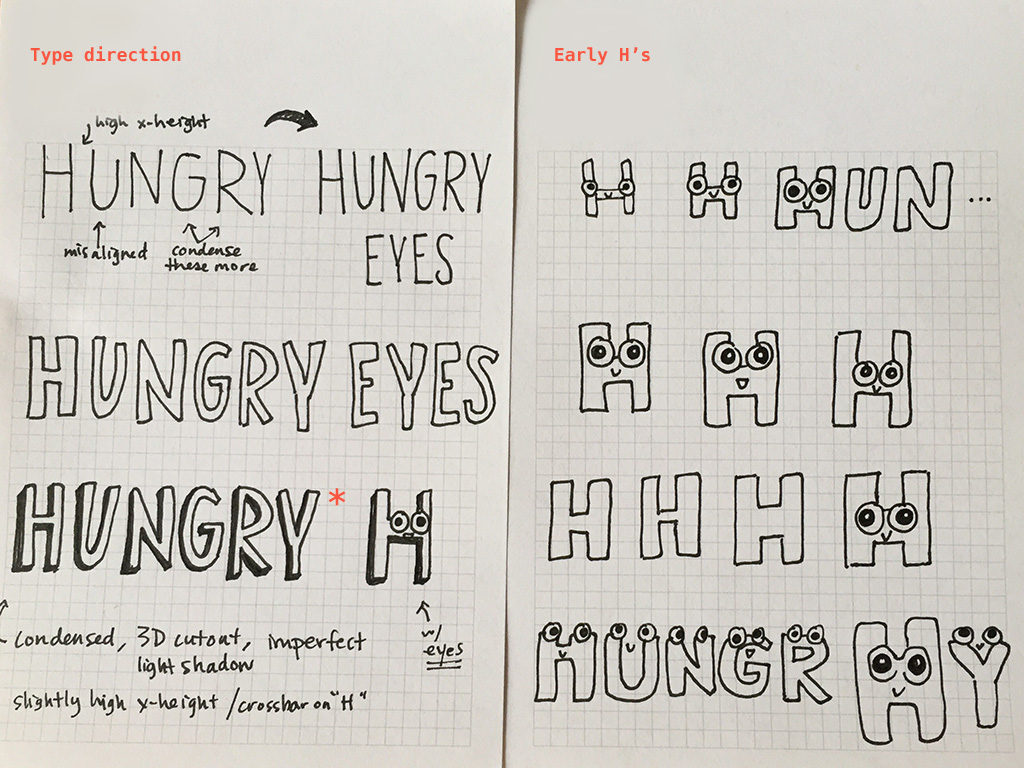 Type direction
high x-height
HUNGRY
HUNGRY
misaligned
condense
these more
EYES
HUNGRY EYES
HUNGRY * H
w/
eyes
condensed, 3D cutout, imperfect
light shadow
slightly high x-height / crossbar on "H"
Early H’s
H H HUN ...
H H H
H H H H
HUNGR H Y